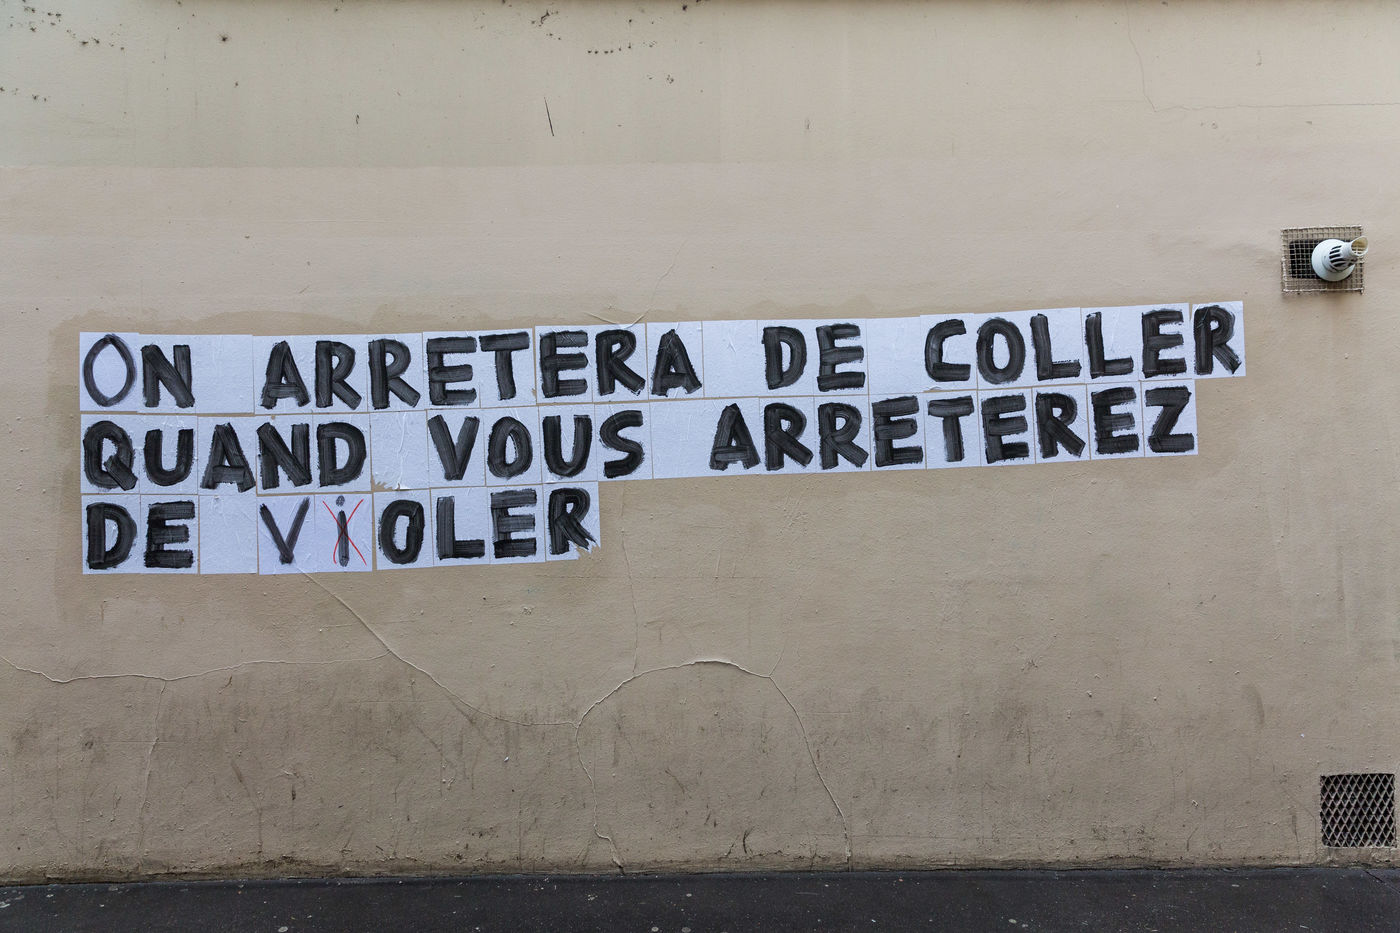 ON ARRETERA DE COLLER
QUAND VOUS ARRETEREZ
DE ViOLER